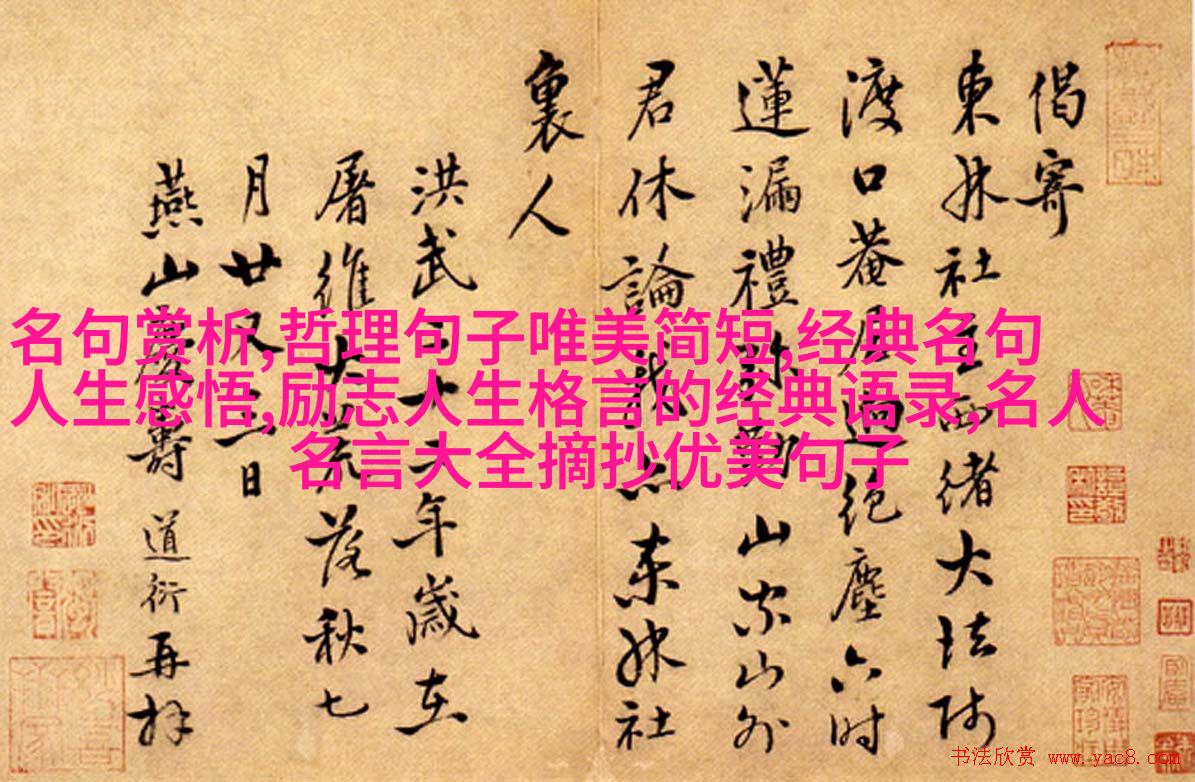 偈寄
東林社主西緒大法師
渡口菴居迥絕塵六時
蓮漏禮弥勤山家山外
君休論我亦東林社
裏人
洪武二十二年歲在
屠維大荒落秋七
月廿又二日
燕山慶壽道衍再拜
名句赏析,哲理句子唯美简短,经典名句
人生感悟,励志人生格言的经典语录,名人
名言大全摘抄优美句子
书法欣赏 www.yac8.com